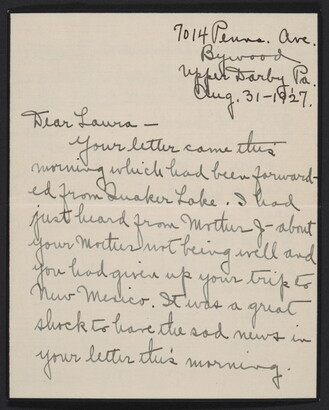 7014 Penna. Ave.
Bywood
Upper Darby Pa.
Aug. 31-1927.
Dear Laura —
Your letter came this
morning which had been forward-
ed from Quaker Lake. I had
just heard from Mother J- about
your Mother not being well and
you had given up your trip to
New Mexico. It was a great
shock to have the sad news in
your letter this morning.